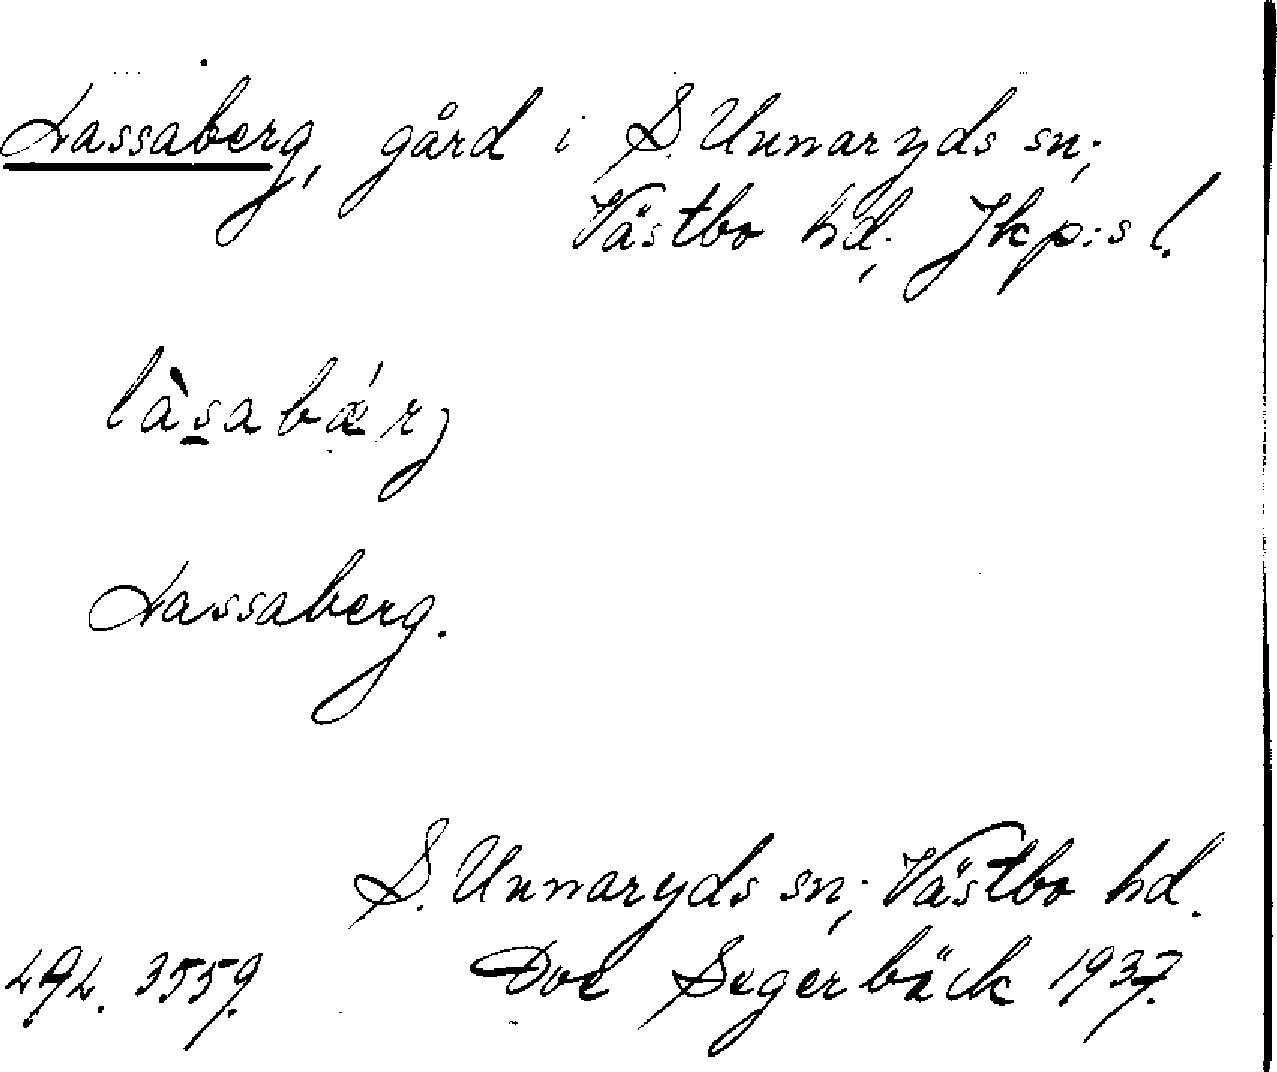 Lassaberg, gård i S. Unnaryds sn;
Västbo hd; Jkp:s l.
làsabǽrj
Lassaberg.
S. Unnaryds sn; Västbo hd.
3559. Segerbäck 1937.